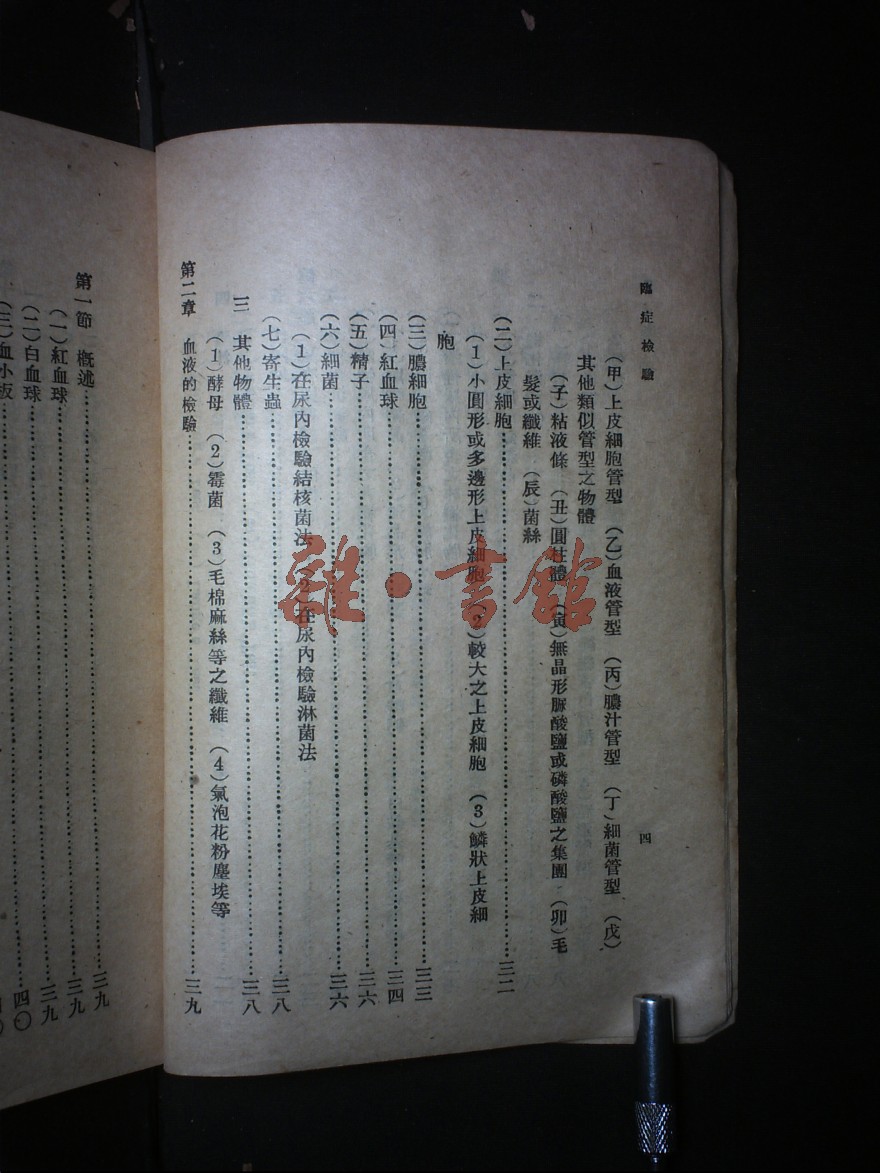 臨症檢驗
四
(甲)上皮細胞管型 (乙)血液管型 (丙)膿汁管型 (丁)細菌管型 (戊)
其他類似管型之物體
(子)粘液條 (丑)圓柱體 (寅)無晶形脲酸鹽或磷酸鹽之集團 (卯)毛
髮或纖維 (辰)菌絲
(二)上皮細胞……三二
(1)小圓形或多邊形上皮細胞 (2)較大之上皮細胞 (3)鱗狀上皮細
胞
(三)膿細胞……三三
(四)紅血球……三四
(五)精子……三六
(六)細菌……三六
(1)在尿內檢驗結核菌法 (2)在尿內檢驗淋菌法
(七)寄生蟲……三八
三 其他物體……三八
(1)酵母 (2)霉菌 (3)毛棉麻絲等之纖維 (4)氣泡花粉塵埃等
第二章 血液的檢驗……三九
第一節 概述……三九
(一)紅血球……三九
(二)白血球……四〇
(三)血小板
雜·書館